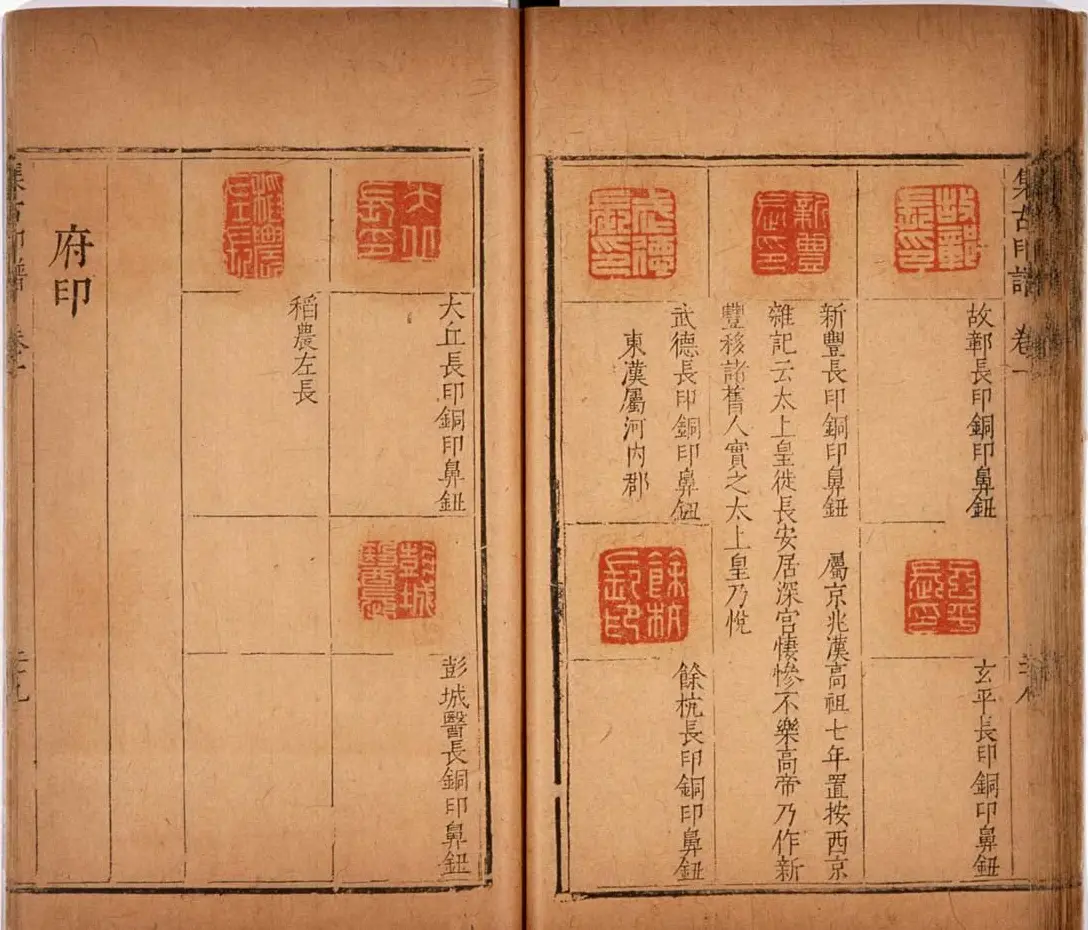 集古印譜 卷一
故鄣長印
故鄣長印銅印鼻鈕
玄平長印銅印鼻鈕
新豐長印
新豐長印銅印鼻鈕 屬京兆漢高祖七年置按西京
雜記云太上皇徙長安居深宮悽慘不樂高帝乃作新
豐移諸舊人實之太上皇乃悅
武德長印
武德長印銅印鼻鈕
東漢屬河內郡
餘杭長印
餘杭長印銅印鼻鈕
大丘長印銅印鼻鈕
彭城醫長
彭城醫長銅印鼻鈕
稻農左長
稻農左長
府印
集古印譜 卷一